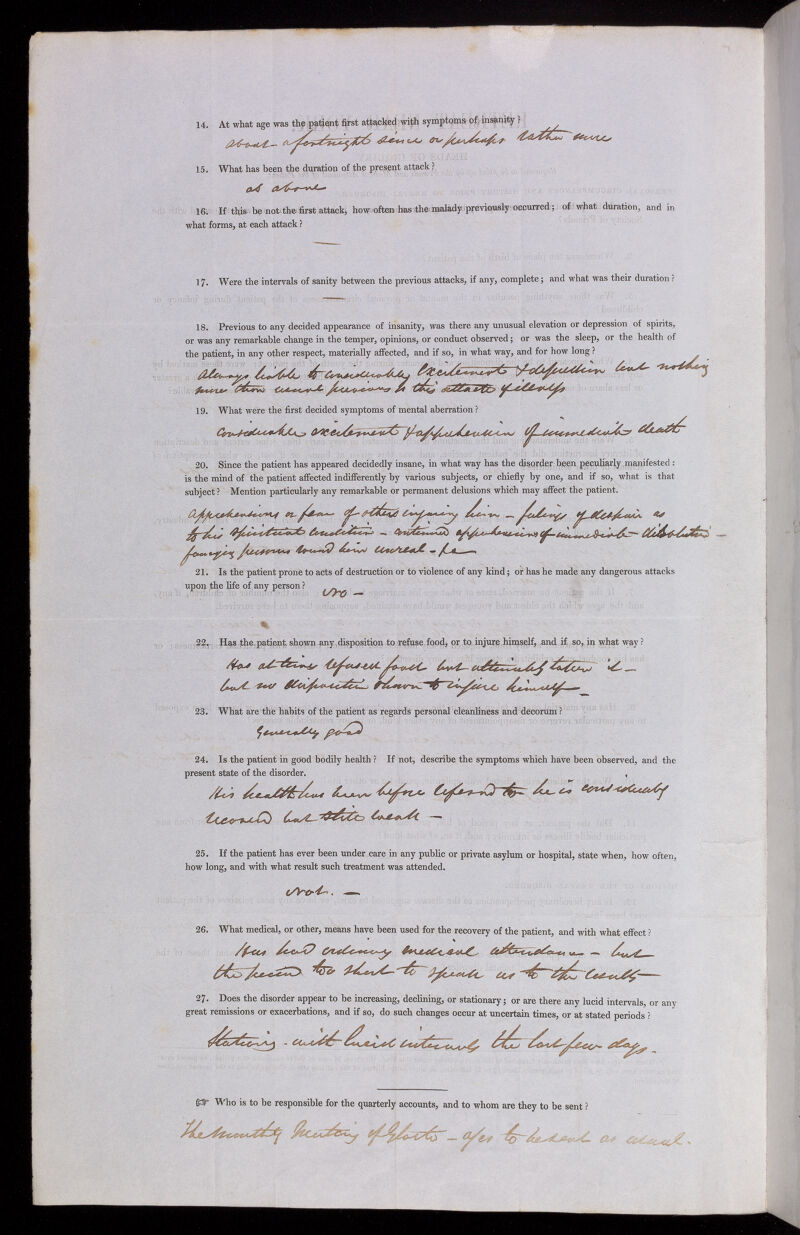 14. At what age was the patient first attacked with symptoms of insanity?
about a fortnight since or perhaps rather more
15. What has been the duration of the present attack?
as above
16. If this be not the first attack, how often has the malady previously occurred; of what duration, and in
what forms, at each attack?
—
17. Were the intervals of sanity between the previous attacks, if any, complete; and what was their duration?
—
18. Previous to any decided appearance of insanity, was there any unusual elevation or depression of spirits,
or was any remarkable change in the temper, opinions, or conduct observed; or was the sleep, or the health of
the patient, in any other respect, materially affected, and if so, in what way, and for how long?
Always liable to considerable excitement & depression but nothing
more than usual previous to this attack of illness
19. What were the first decided symptoms of mental aberration?
Considerable excitement & apprehension of immediate death
20. Since the patient has appeared decidedly insane, in what way has the disorder been peculiarly manifested:
is the mind of the patient affected indifferently by various subjects, or chiefly by one, and if so, what is that
subject? Mention particularly any remarkable or permanent delusions which may affect the patient.
Apprehensions or fear of others injuring him – feelings of despair as
to his spiritual condition – continued apprehensions of immediate dissolution –
fancying persons round him unreal –
21. Is the patient prone to acts of destruction or to violence of any kind; or has he made any dangerous attacks
upon the life of any person?
No –
22. Has the patient shown any disposition to refuse food, or to injure himself, and if so, in what way?
Has at times refused food but ultimately taken it –
but no disposition shown to injure himself –
23. What are the habits of the patient as regards personal cleanliness and decorum?
Generally good
24. Is the patient in good bodily health? If not, describe the symptoms which have been observed, and the
present state of the disorder.
His health has been before he is considerably
but still weak –
25. If the patient has ever been under care in any public or private asylum or hospital, state when, how often,
how long, and with what result such treatment was attended.
Not. –
26. What medical, or other, means have been used for the recovery of the patient, and with what effect?
Has had ordinary medical attendance – but
the period too short to speak as to the results
27. Does the disorder appear to be increasing, declining, or stationary; or are there any lucid intervals, or any
great remissions or exacerbations, and if so, do such changes occur at uncertain times, or at stated periods?
with lucid intervals the last few days.
☞ Who is to be responsible for the quarterly accounts, and to whom are they to be sent?
The Monthly Meeting of – a/cs to be sent as usual.